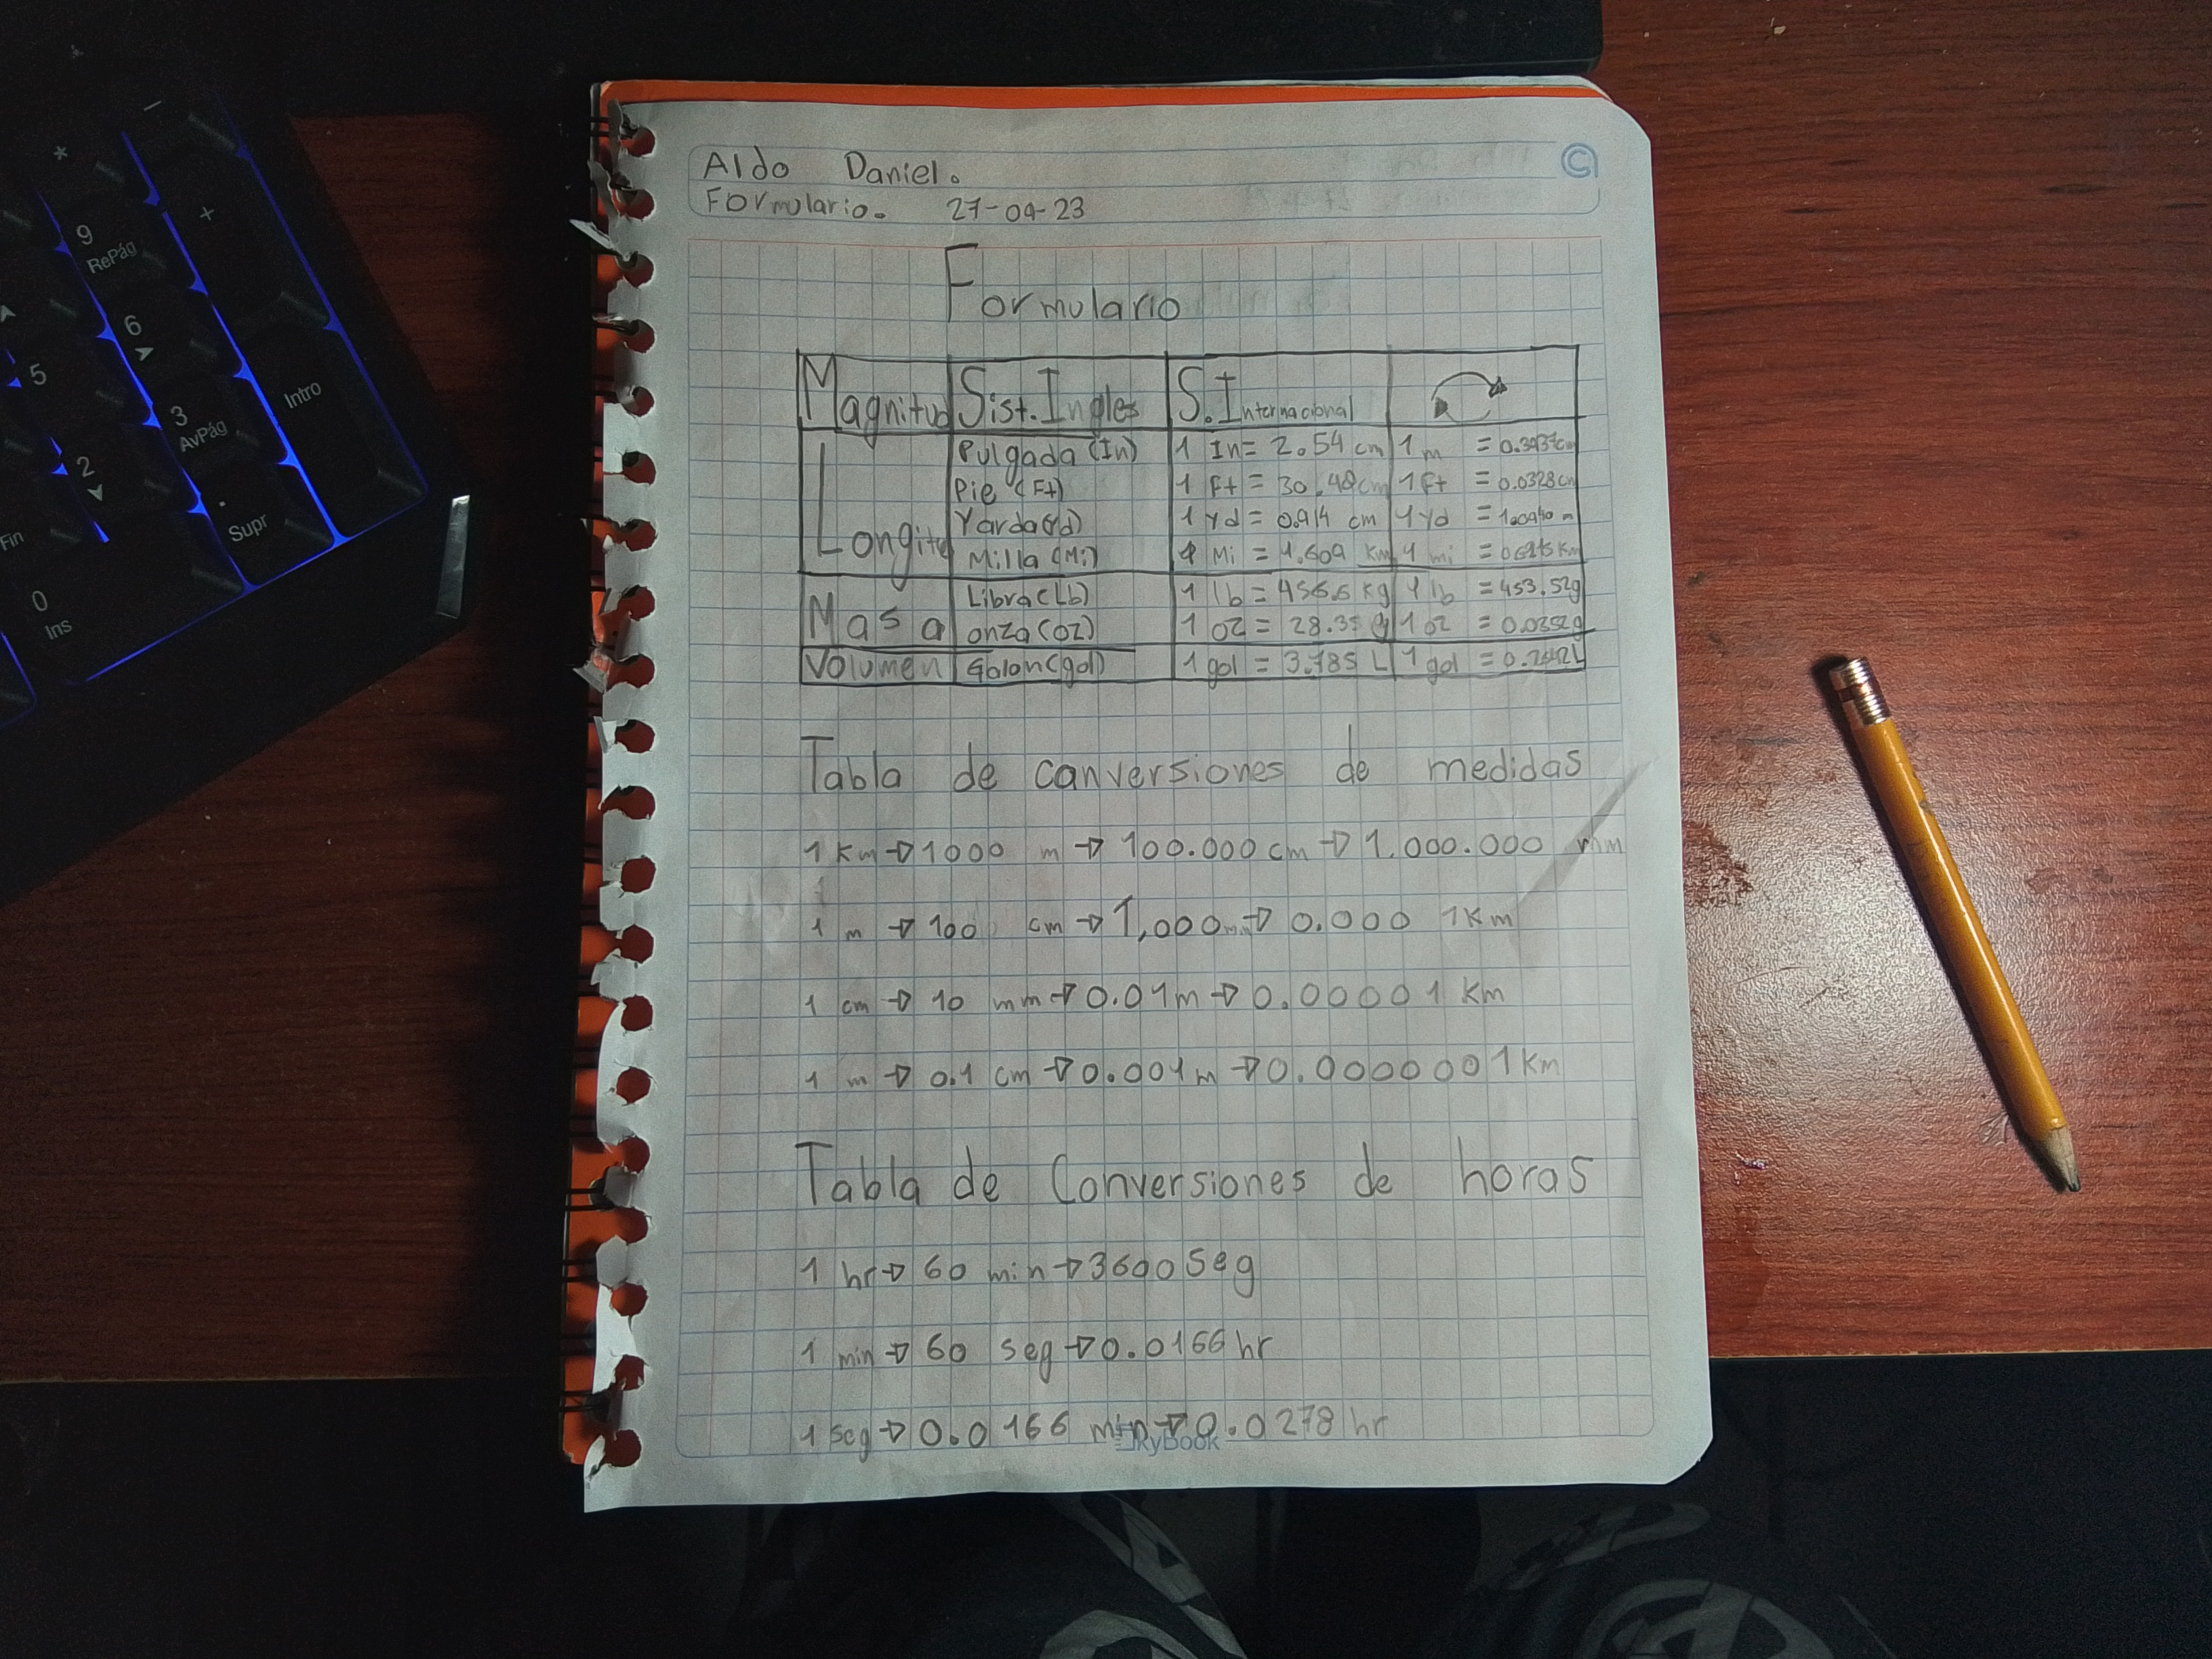 *
−
+
9
RePág
6
5
Intro
3
AvPág
2
.
Supr
Fin
0
Ins
Aldo Daniel.
Formulario. 27-04-23
Formulario
Magnitud Sist. Ingles S. Internacional
Longitud
Pulgada (In) 1 In = 2.54 cm 1 m = 0.3937cm
Pie (Ft) 1 Ft = 30.48cm 1 Ft = 0.0328cm
Yarda(yd) 1 yd = 0.914 cm 1 yd
Milla (Mi) 1 Mi = 1.609 Km 1 mi
Masa
Libra(Lb) 1 lb = 456.6 kg 1 lb = 453.52g
onza(oz) 1 oz = 28.35 g 1 oz = 0.0352g
Volumen Galon(gal) 1 gal = 3.785 L 1 gal = 0.2642L
Tabla de canversiones de medidas
1 Km → 1000 m → 100.000 cm → 1.000.000 mm
1 m → 100 cm → 1,000mm → 0.000 1Km
1 cm → 10 mm → 0.01m → 0.00001 Km
1 m → 0.1 cm → 0.001m → 0.0000001Km
Tabla de Conversiones de horas
1 hr → 60 min → 3600 Seg
1 min → 60 seg → 0.0166 hr
1 seg → 0.0166 min → 0.0278 hr
SkyBook